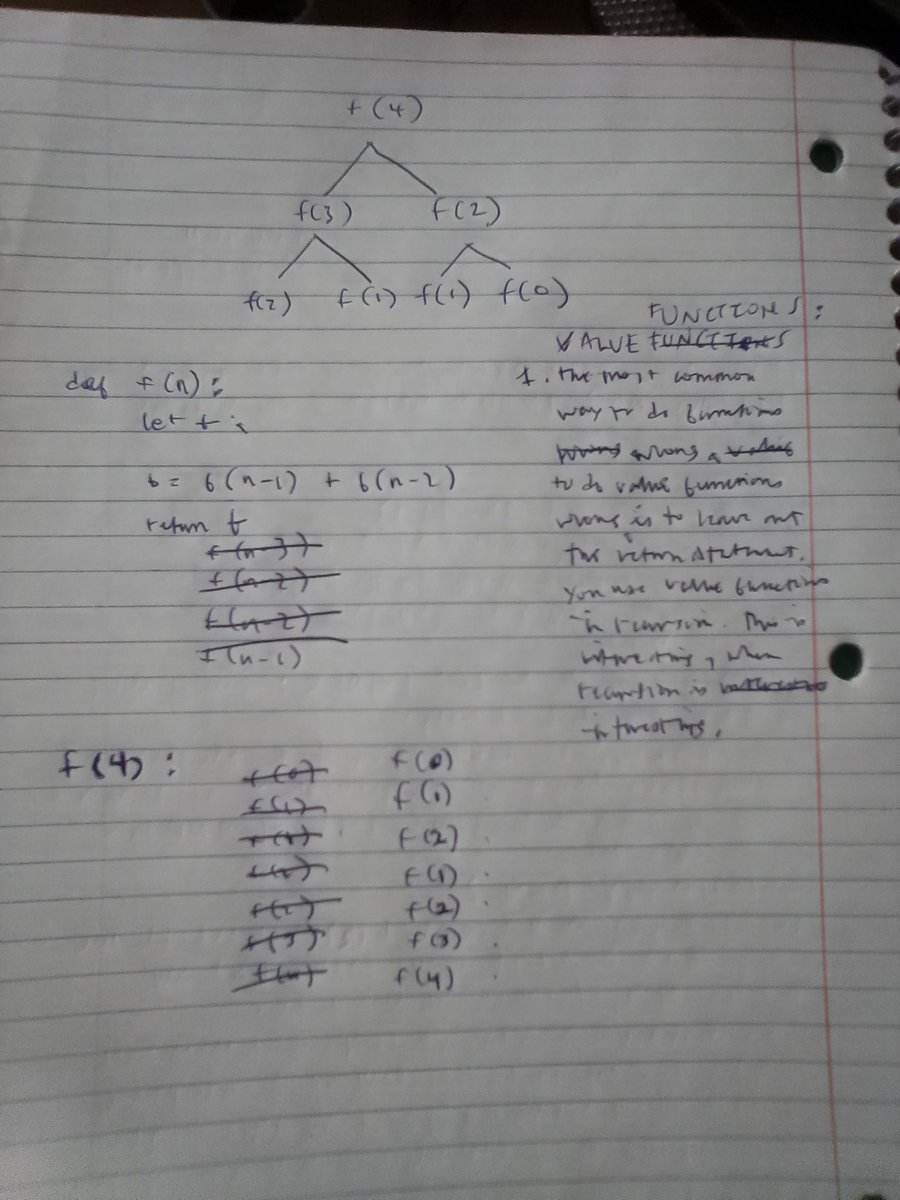 f(4)
f(3) f(2)
f(2) f(1) f(1) f(0)
def f(n):
let t;
t = f(n-1) + f(n-2)
return t
f(n-3)
f(n-2)
f(n-2)
f(n-1)
FUNCTIONS:
VALUE FUNCTIONS
1. the most common
way to do functions
wrong a value
to do value functions
wrong is to leave out
the return statement.
You use value functions
in recursion. This is
interesting, when
recursion is
interesting.
f(4):
f(0) f(0)
f(1) f(1)
f(2)
f(1)
f(2) f(2)
f(3) f(3)
f(4) f(4)